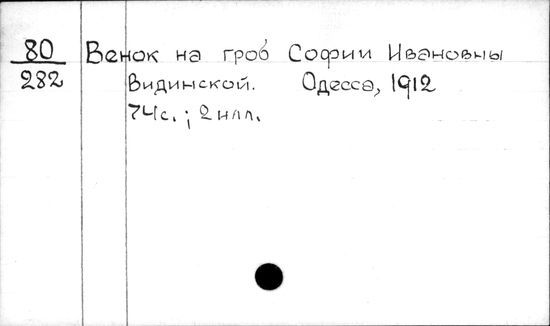 80 Венок на гроб Софии Ивановны
282 Видинской. Одесса, 1912
74с. ; 2 илл.